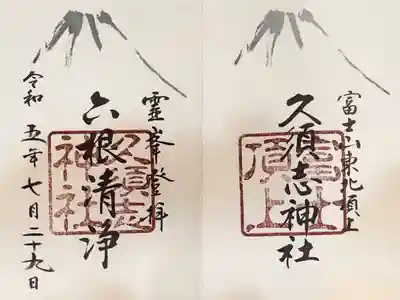 富士山東北頂上
久須志神社
富士山頂上
靈峯登拝
六根清浄
久須志神社
令和五年七月二十九日